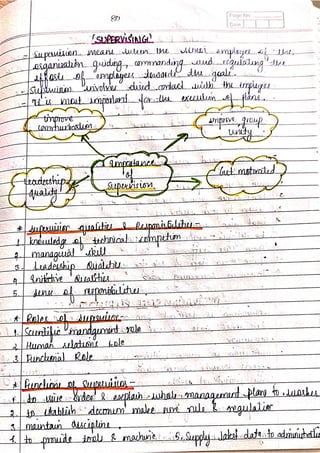 80
Page No.
Date
'SUPERVISING'
- Supervision means when the direct employee of the
organisation guiding, commanding and regulating the
efforts of employees towards the goals.
- Supervision involves direct contact with the employee
- It is most important for the execution of plans.
improve
communication
improve group
unity
Importance
of
Supervision
Leadership
quality
Get motivated
* Supervision qualities & Responsibilities -
1 knowledge of technical competion
2 managerial skill
3 Leadership Qualities
4 Initiative Qualities
5 sense of responsibilities.
* Roles of Supervisor -
1. Scientific management role
2 Human relations role
3 Functional Role
* Functions of Supervision -
1. to issue order & explain whole management plans to worker
2. to establish decorum make rule & regulation
3. maintain discipline.
4. to provide tools & machine 5. Supply latest data to administration